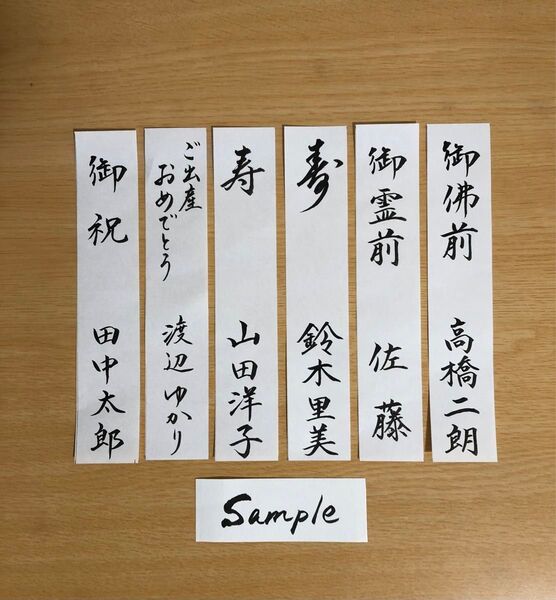 御佛前 高橋二朗
御霊前 佐藤
寿 鈴木里美
寿 山田洋子
ご出産
おめでとう
渡辺ゆかり
御祝 田中太郎
Sample